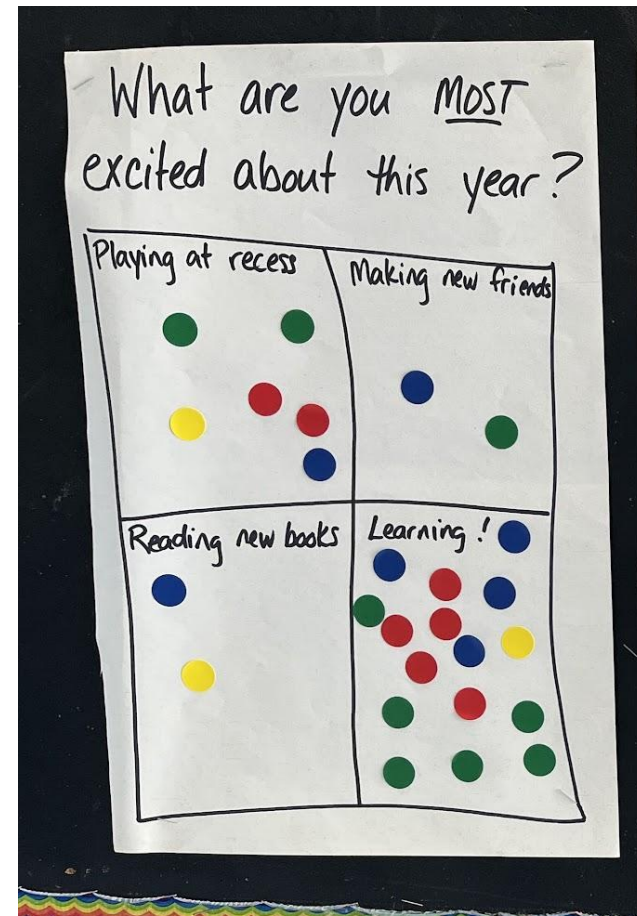 What are you MOST
excited about this year?
Playing at recess
Making new friends
Reading new books
Learning!